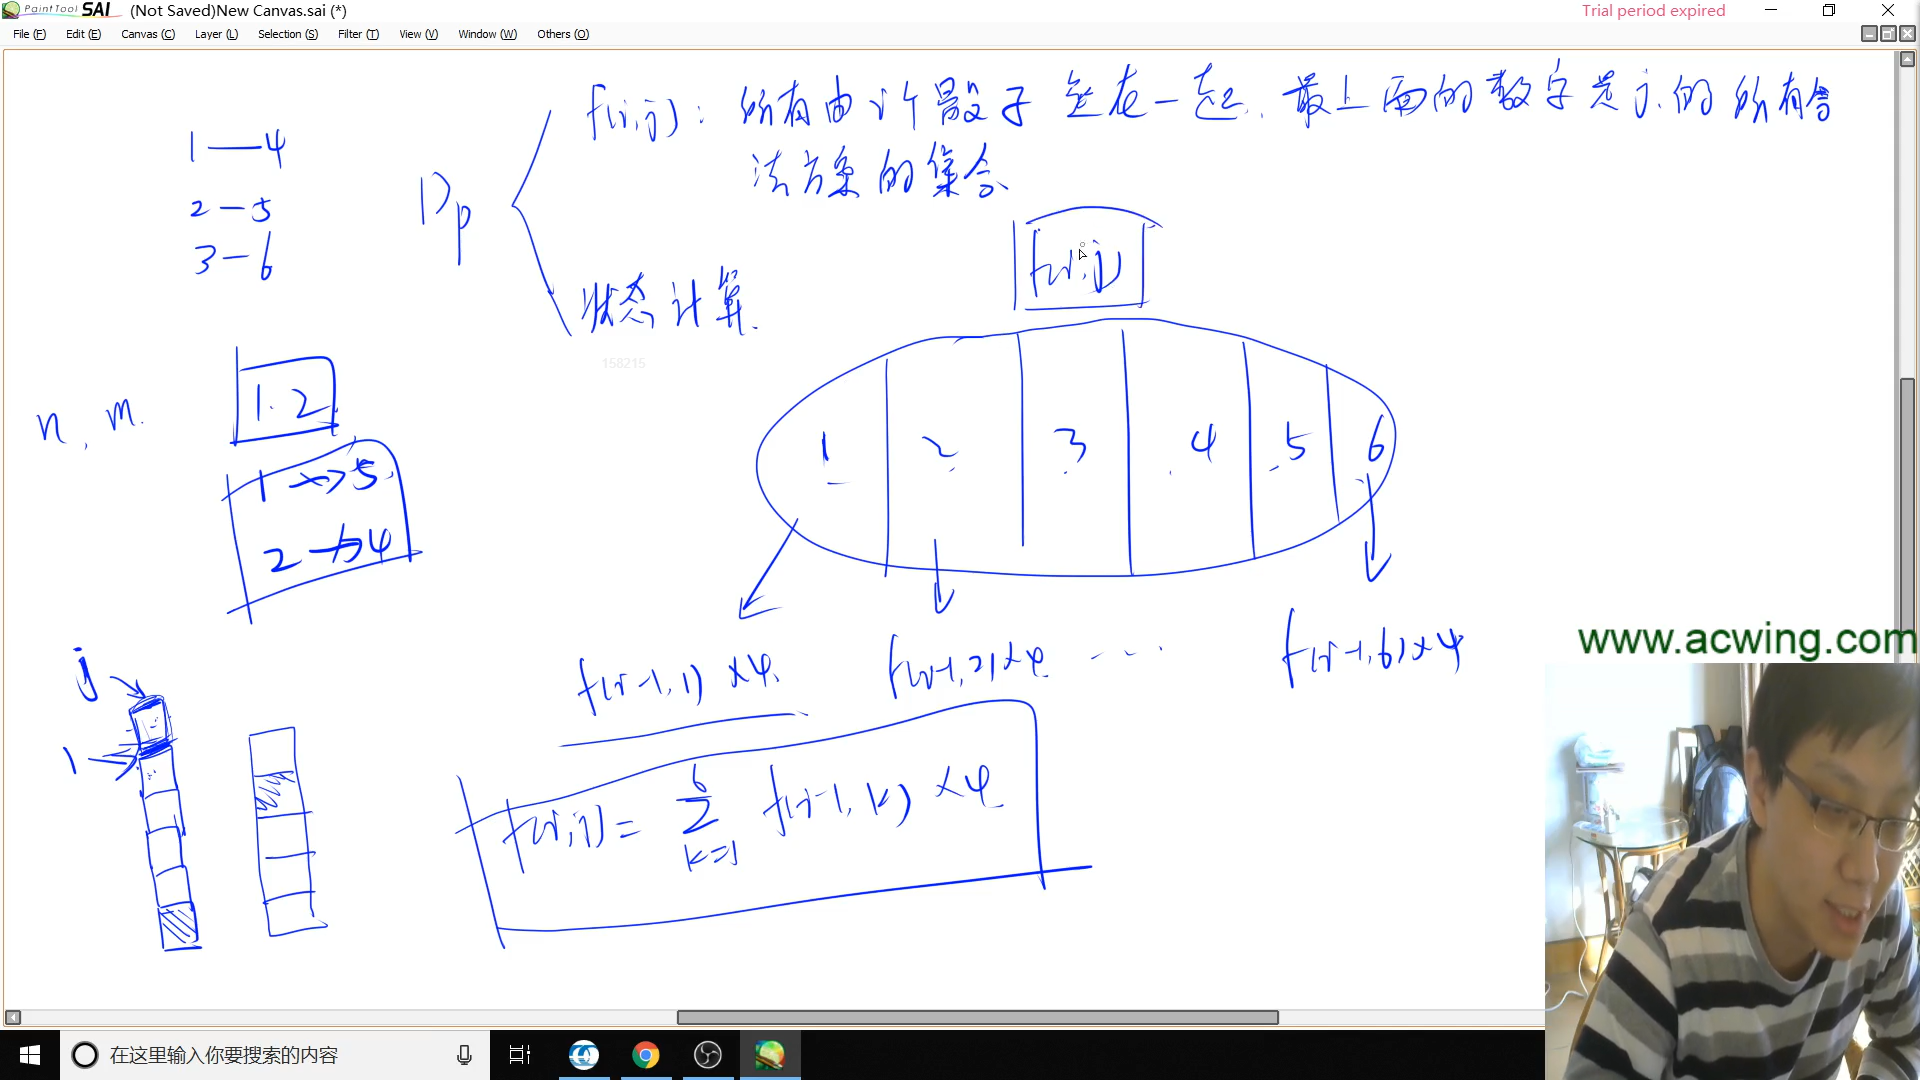 PaintTool SAI (Not Saved)New Canvas.sai (*)
Trial period expired
File (F) Edit (E) Canvas (C) Layer (L) Selection (S) Filter (T) View (V) Window (W) Others (O)
f(i,j): 所有由i个骰子垒在一起,最上面的数字是j的所有合
法方案的集合
1—4
2—5
3—6
Dp
f(i,j)
状态计算.
158215
n, m.
1. 2
1 → 5
2 → 4
1 2 3 4 5 6
f(i-1,1)×4 f(i-1,2)×4 ...... f(i-1,6)×4
j
1
f(i,j) = 6∑k=1 f(i-1,k)×4
www.acwing.com
在这里输入你要搜索的内容